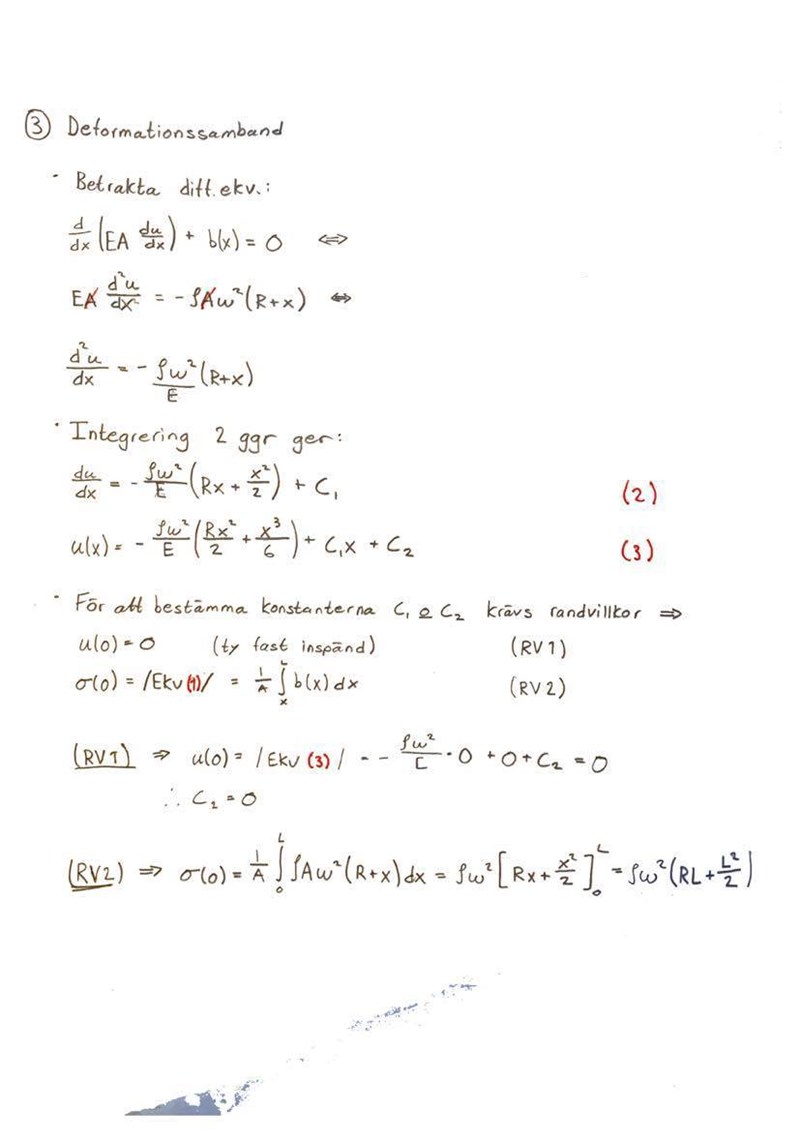 ③ Deformationssamband
· Betrakta diff.ekv.:
d/dx (EA du/dx) + b(x) = 0 ⇔
EA d²u/dx² = - ρAω²(R+x) ⇔
d²u/dx = - ρω²/E (R+x)
· Integrering 2 ggr ger:
du/dx = - ρω²/E (Rx + x²/2) + C₁ (2)
u(x) = - ρω²/E (Rx²/2 + x³/6) + C₁x + C₂ (3)
· För att bestämma konstanterna C₁ o C₂ krävs randvillkor ⇒
u(0) = 0 (ty fast inspänd) (RV1)
σ(0) = /Ekv (1)/ = 1/A ∫ₓᴸ b(x) dx (RV2)
(RV1) ⇒ u(0) = /Ekv (3)/ = - ρω²/E · 0 + 0 + C₂ = 0
∴ C₂ = 0
(RV2) ⇒ σ(0) = 1/A ∫₀ᴸ ρAω²(R+x)dx = ρω² [Rx + x²/2]₀ᴸ = ρω²(RL + L²/2)